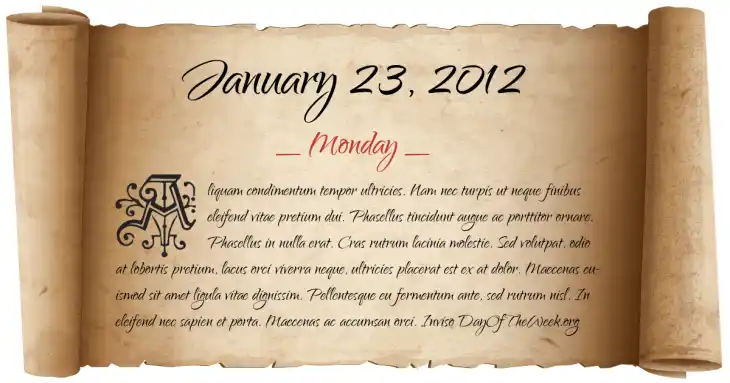 January 23, 2012
_ Monday _
Aliquam condimentum tempor ultricies. Nam nec turpis ut neque finibus
eleifend vitae pretium dui. Phasellus tincidunt augue ac porttitor ornare.
Phasellus in nulla erat. Cras rutrum lacinia molestie. Sed volutpat, odio
at lobortis pretium, lacus orci viverra neque, ultricies placerat est ex at dolor. Maecenas eu-
ismod sit amet ligula vitae dignissim. Pellentesque eu fermentum ante, sed rutrum nisl. In
eleifend nec sapien et porta. Maecenas ac accumsan orci. Inviso DayOfTheWeek.org